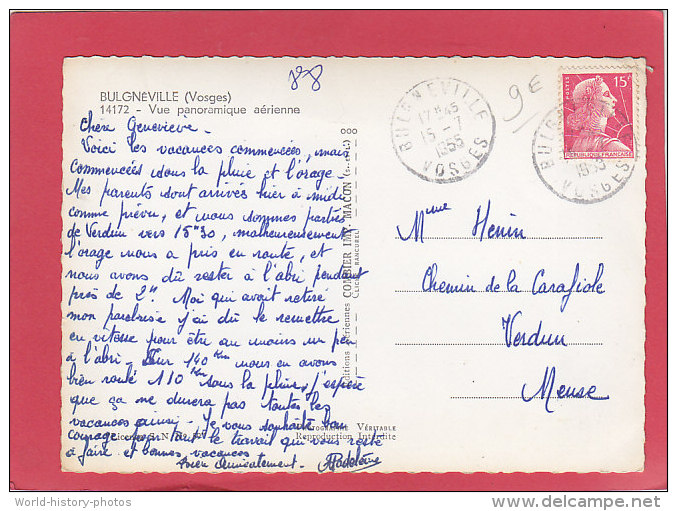 BULGNÉVILLE (Vosges)
14172 - Vue panoramique aérienne
Chère Geneviève -
Voici les vacances commencées, mais
commencées sous la pluie et l'orage.
Mes parents sont arrivés hier à midi
comme prévu, et nous sommes partis
de Verdun vers 15h30, malheureusement
l'orage nous a pris en route, et
nous avons dû rester à l'abri pendant
près de 2h. Moi qui avait retiré
mon pare-brise j'ai dû le remettre
en vitesse pour être au moins un peu
à l'abri - Sur 140 Km nous en avons
bien roulé 110 Km sous la pluie, j'espère
que ça ne durera pas toutes les
vacances ainsi. Je vous souhaite bon
courage pour tout le travail qui vous reste
à faire et bonnes vacances
bien amicalement - Madeleine
Éditions aériennes COMBIER IMP. MACON
PHOTOGRAPHIE VÉRITABLE
Reproduction Interdite
88
9€
BULGNEVILLE
17H45
15-7
1955
VOSGES
15F
POSTES
REPUBLIQUE FRANÇAISE
VOSGES
Mme Henin
Chemin de la Carafiole
Verdun
Meuse
World-history-photos
http://www.delcampe.net